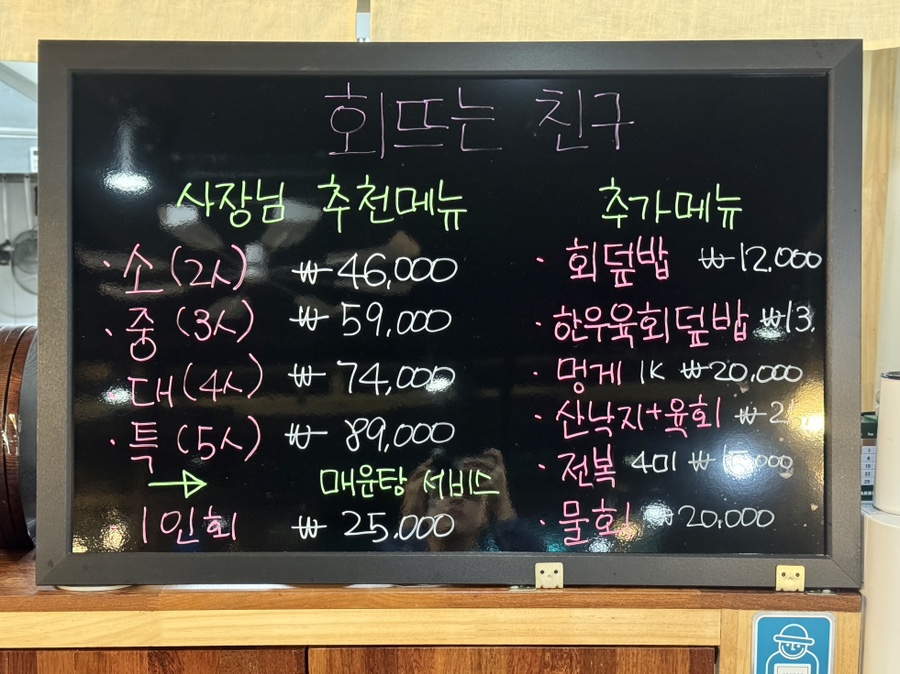 회뜨는 친구
사장님 추천메뉴
· 소(2人) ₩ 46,000
· 중 (3人) ₩ 59,000
· 대(4人) ₩ 74,000
· 특 (5人) ₩ 89,000
→ 매운탕 서비스
· 1인회 ₩ 25.000
추가메뉴
· 회덮밥 ₩ 12.000
· 한우육회덮밥 ₩13.
· 멍게 1K ₩20,000
· 산낙지+육회 ₩
· 전복 4미 ₩
· 물회 ₩20,000